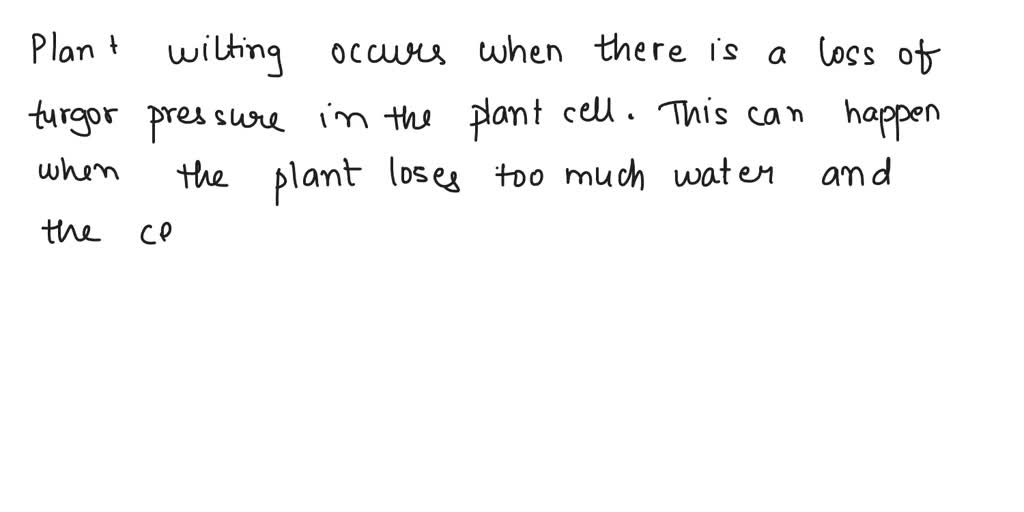 Plant wilting occurs when there is a loss of
turgor pressure in the plant cell. This can happen
when the plant loses too much water and
the ce